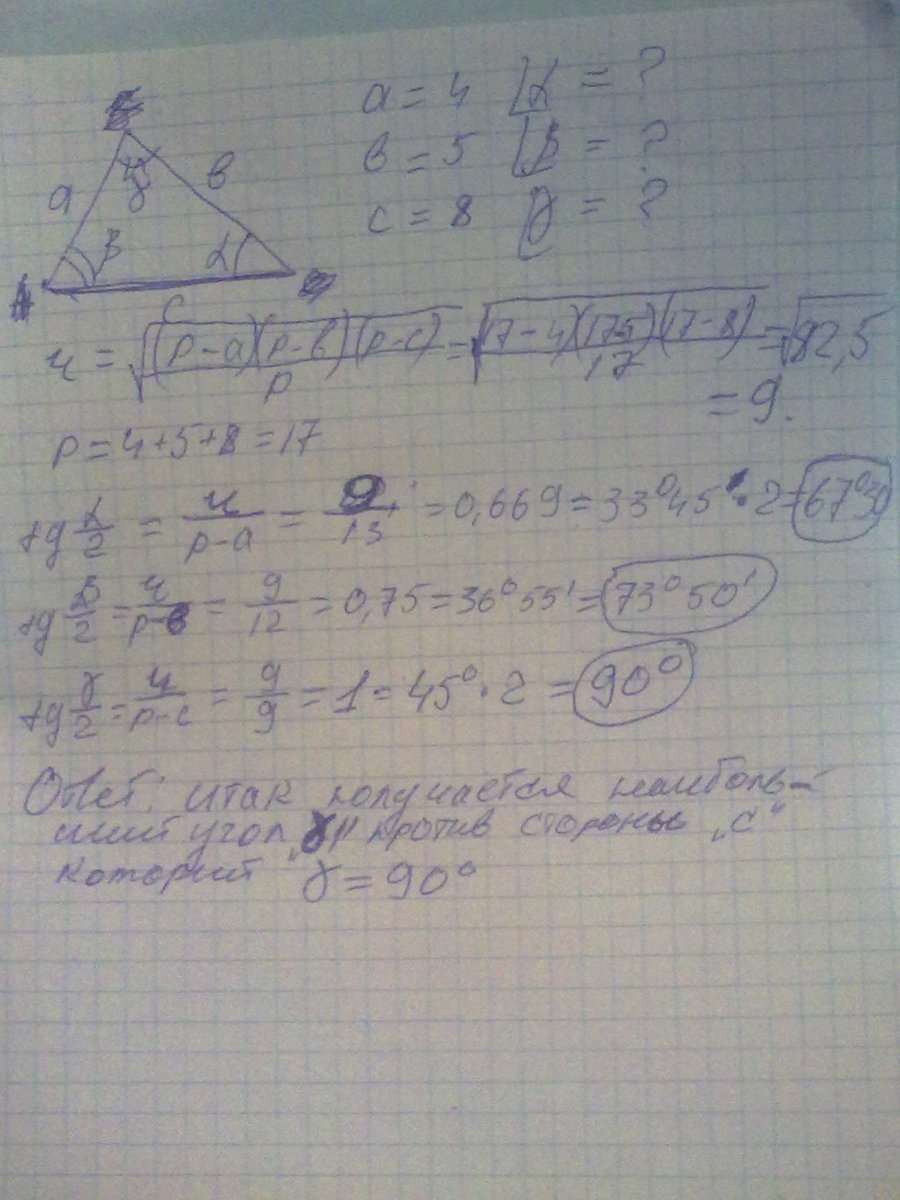 a = 4 ∠α = ?
в = 5 ∠β = ?
c = 8 γ = ?
a γ в
β α
c
ч = √((p-a)(p-в)(p-c)/p) = √((17-4)(175)(17-8)/17) = √82,5
= 9.
p = 4+5+8 = 17
tg α/2 = ч/(p-a) = 9/13 = 0,669 = 33°45'·2 = 67°30
tg β/2 = ч/(p-в) = 9/12 = 0,75 = 36°55' = 73°50'
tg γ/2 = ч/(p-c) = 9/9 = 1 = 45°·2 = 90°
Ответ: итак получается наиболь-
ший угол „γ" против стороны „c"
которий γ = 90°